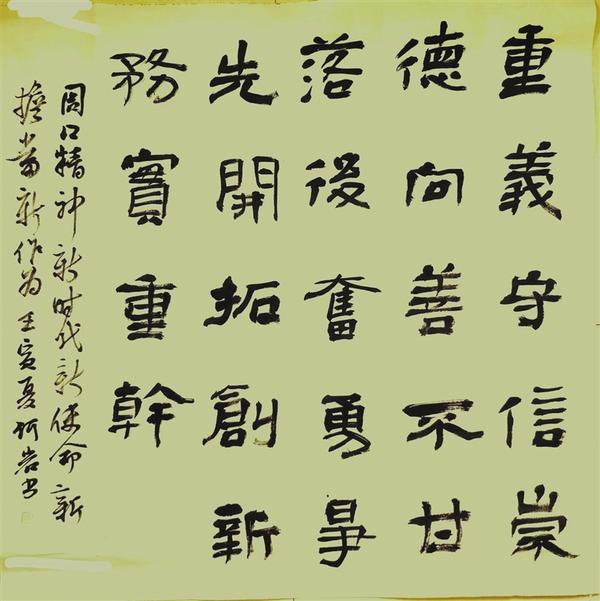 重義守信崇
德向善不甘
落後奮勇爭
先開拓創新
務實重幹
周口精神新时代新使命新
擔當新作为 壬寅夏 书